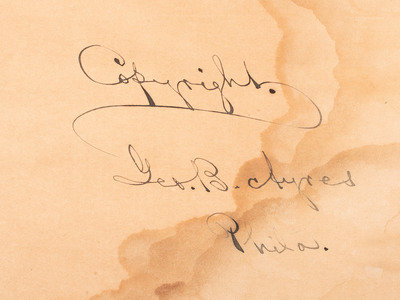 Copyright.
Geo. B. Ayres
Phila.